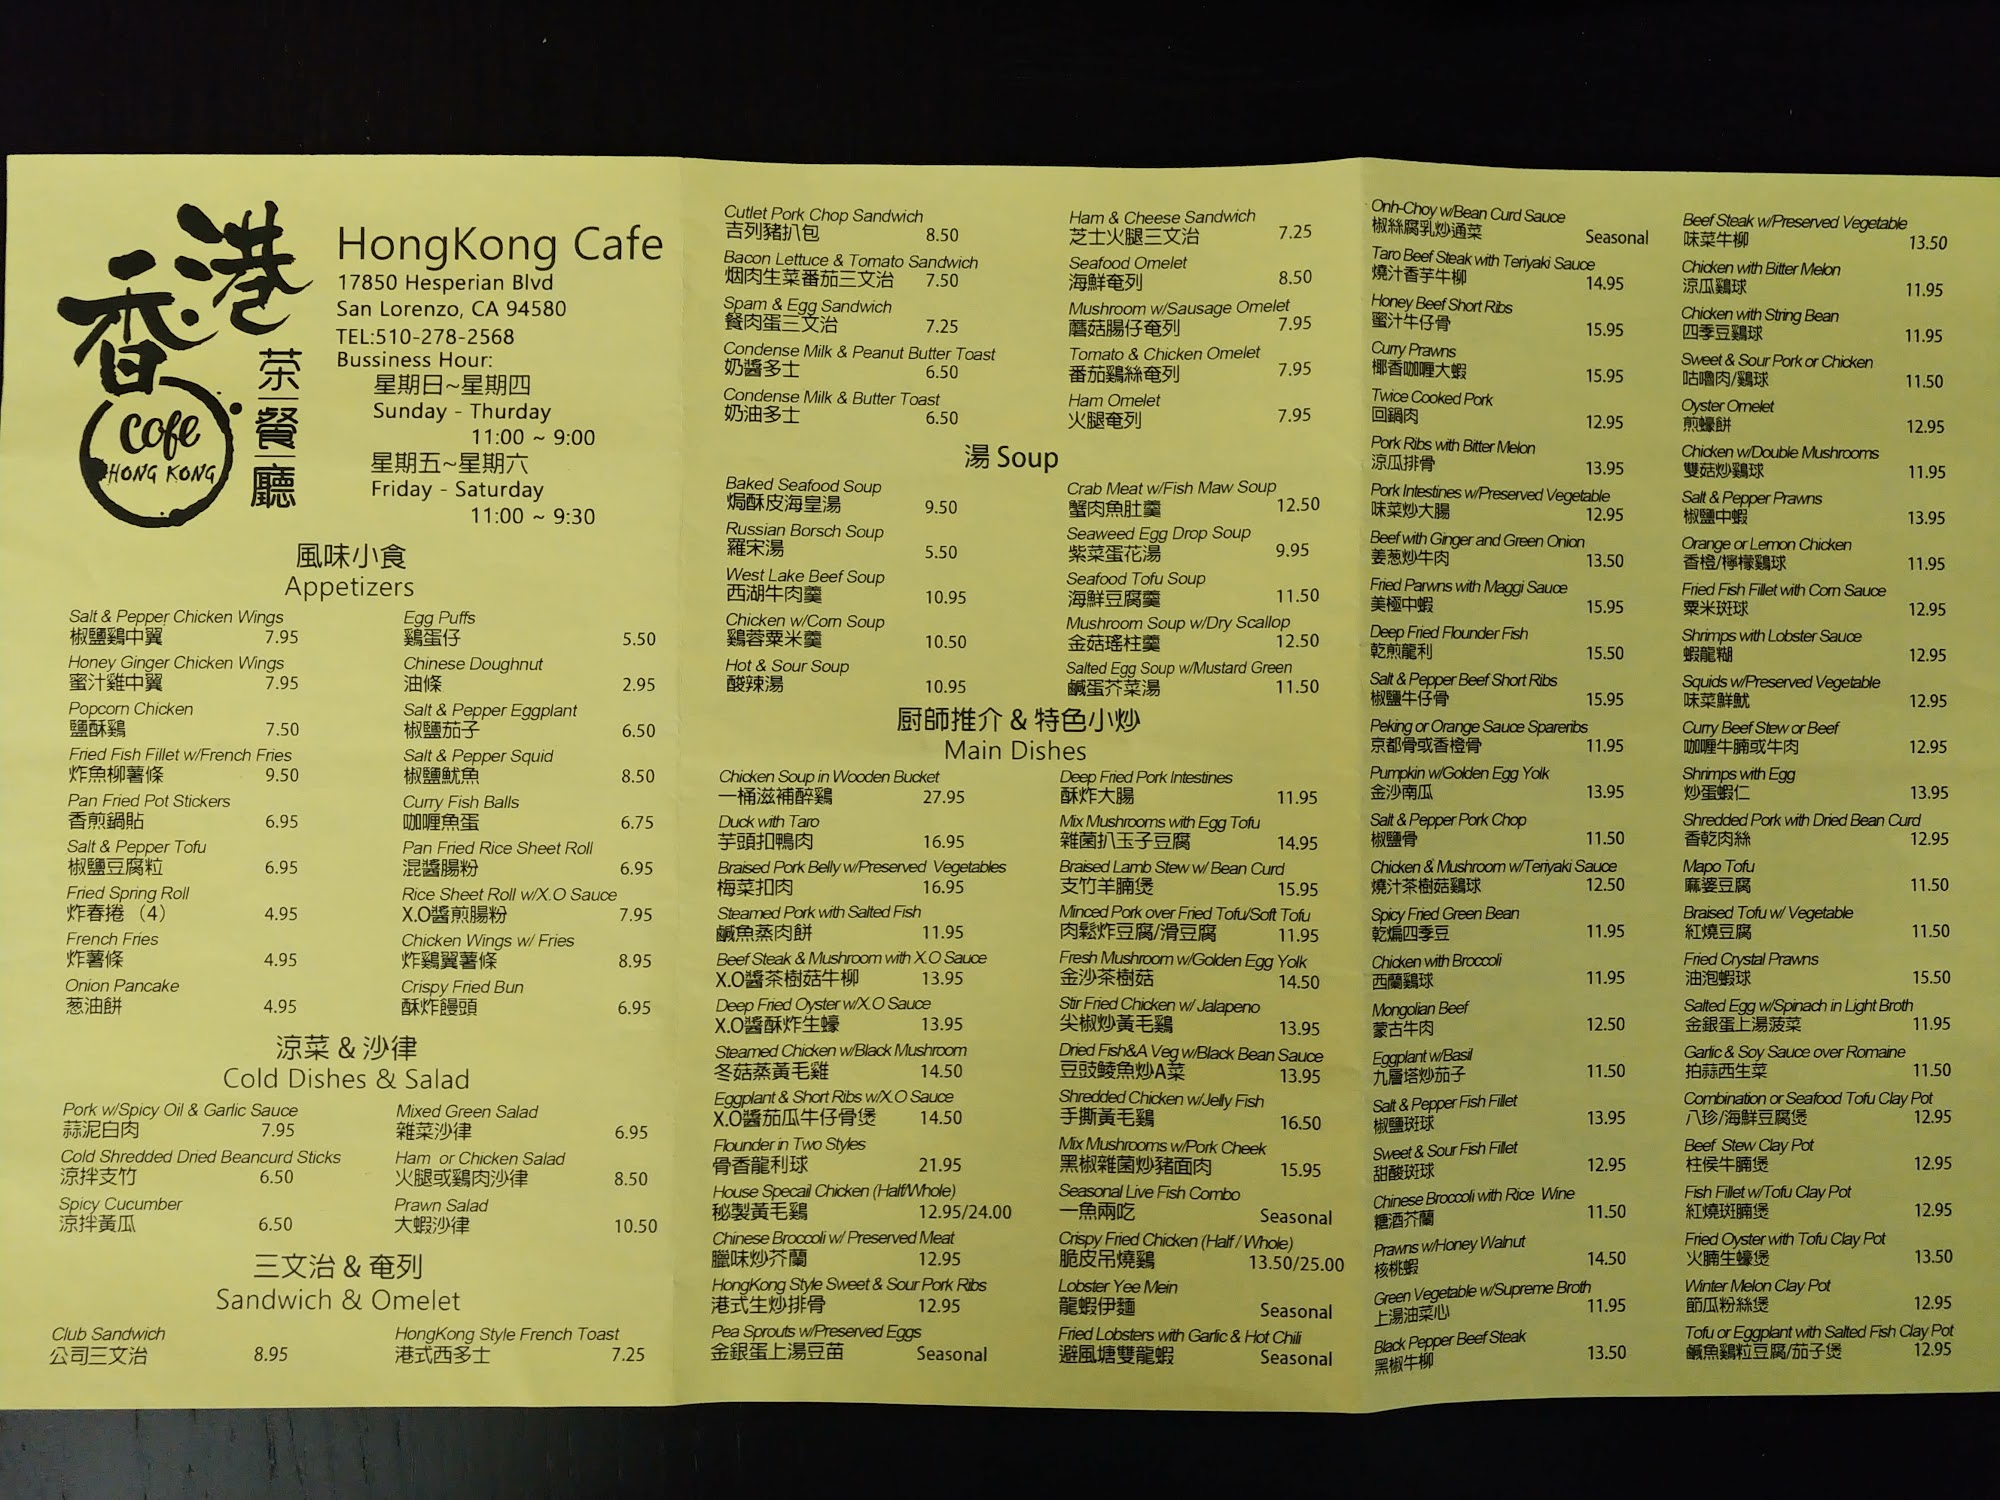 香港
茶餐廳
Cafe
HONG KONG
HongKong Cafe
17850 Hesperian Blvd
San Lorenzo, CA 94580
TEL:510-278-2568
Bussiness Hour:
星期日~星期四
Sunday - Thurday
11:00 ~ 9:00
星期五~星期六
Friday - Saturday
11:00 ~ 9:30
風味小食
Appetizers
Salt & Pepper Chicken Wings
椒鹽鷄中翼 7.95
Honey Ginger Chicken Wings
蜜汁雞中翼 7.95
Popcorn Chicken
鹽酥鷄 7.50
Fried Fish Fillet w/French Fries
炸魚柳薯條 9.50
Pan Fried Pot Stickers
香煎鍋貼 6.95
Salt & Pepper Tofu
椒鹽豆腐粒 6.95
Fried Spring Roll
炸春捲（4） 4.95
French Fries
炸薯條 4.95
Onion Pancake
葱油餅 4.95
Egg Puffs
鷄蛋仔 5.50
Chinese Doughnut
油條 2.95
Salt & Pepper Eggplant
椒鹽茄子 6.50
Salt & Pepper Squid
椒鹽魷魚 8.50
Curry Fish Balls
咖喱魚蛋 6.75
Pan Fried Rice Sheet Roll
混醬腸粉 6.95
Rice Sheet Roll w/X.O Sauce
X.O醬煎腸粉 7.95
Chicken Wings w/ Fries
炸鷄翼薯條 8.95
Crispy Fried Bun
酥炸饅頭 6.95
涼菜 & 沙律
Cold Dishes & Salad
Pork w/Spicy Oil & Garlic Sauce
蒜泥白肉 7.95
Cold Shredded Dried Beancurd Sticks
涼拌支竹 6.50
Spicy Cucumber
涼拌黃瓜 6.50
Mixed Green Salad
雜菜沙律 6.95
Ham or Chicken Salad
火腿或鷄肉沙律 8.50
Prawn Salad
大蝦沙律 10.50
三文治 & 奄列
Sandwich & Omelet
Club Sandwich
公司三文治 8.95
HongKong Style French Toast
港式西多士 7.25
Cutlet Pork Chop Sandwich
吉列豬扒包 8.50
Bacon Lettuce & Tomato Sandwich
烟肉生菜番茄三文治 7.50
Spam & Egg Sandwich
餐肉蛋三文治 7.25
Condense Milk & Peanut Butter Toast
奶醬多士 6.50
Condense Milk & Butter Toast
奶油多士 6.50
Ham & Cheese Sandwich
芝士火腿三文治 7.25
Seafood Omelet
海鮮奄列 8.50
Mushroom w/Sausage Omelet
蘑菇腸仔奄列 7.95
Tomato & Chicken Omelet
番茄鷄絲奄列 7.95
Ham Omelet
火腿奄列 7.95
湯 Soup
Baked Seafood Soup
焗酥皮海皇湯 9.50
Russian Borsch Soup
羅宋湯 5.50
West Lake Beef Soup
西湖牛肉羹 10.95
Chicken w/Corn Soup
鷄蓉粟米羹 10.50
Hot & Sour Soup
酸辣湯 10.95
Crab Meat w/Fish Maw Soup
蟹肉魚肚羹 12.50
Seaweed Egg Drop Soup
紫菜蛋花湯 9.95
Seafood Tofu Soup
海鮮豆腐羹 11.50
Mushroom Soup w/Dry Scallop
金菇瑤柱羹 12.50
Salted Egg Soup w/Mustard Green
鹹蛋芥菜湯 11.50
厨師推介 & 特色小炒
Main Dishes
Chicken Soup in Wooden Bucket
一桶滋補醉鷄 27.95
Duck with Taro
芋頭扣鴨肉 16.95
Braised Pork Belly w/Preserved Vegetables
梅菜扣肉 16.95
Steamed Pork with Salted Fish
鹹魚蒸肉餅 11.95
Beef Steak & Mushroom with X.O Sauce
X.O醬茶樹菇牛柳 13.95
Deep Fried Oyster w/X.O Sauce
X.O醬酥炸生蠔 13.95
Steamed Chicken w/Black Mushroom
冬菇蒸黃毛雞 14.50
Eggplant & Short Ribs w/X.O Sauce
X.O醬茄瓜牛仔骨煲 14.50
Flounder in Two Styles
骨香龍利球 21.95
House Specail Chicken (Half/Whole)
秘製黃毛鷄 12.95/24.00
Chinese Broccoli w/ Preserved Meat
臘味炒芥蘭 12.95
HongKong Style Sweet & Sour Pork Ribs
港式生炒排骨 12.95
Pea Sprouts w/Preserved Eggs
金銀蛋上湯豆苗 Seasonal
Deep Fried Pork Intestines
酥炸大腸 11.95
Mix Mushrooms with Egg Tofu
雜菌扒玉子豆腐 14.95
Braised Lamb Stew w/ Bean Curd
支竹羊腩煲 15.95
Minced Pork over Fried Tofu/Soft Tofu
肉鬆炸豆腐/滑豆腐 11.95
Fresh Mushroom w/Golden Egg Yolk
金沙茶樹菇 14.50
Stir Fried Chicken w/ Jalapeno
尖椒炒黃毛鷄 13.95
Dried Fish&A Veg w/Black Bean Sauce
豆豉鯪魚炒A菜 13.95
Shredded Chicken w/Jelly Fish
手撕黃毛鷄 16.50
Mix Mushrooms w/Pork Cheek
黑椒雜菌炒豬面肉 15.95
Seasonal Live Fish Combo
一魚兩吃 Seasonal
Crispy Fried Chicken (Half / Whole)
脆皮吊燒鷄 13.50/25.00
Lobster Yee Mein
龍蝦伊麵 Seasonal
Fried Lobsters with Garlic & Hot Chili
避風塘雙龍蝦 Seasonal
Onh-Choy w/Bean Curd Sauce
椒絲腐乳炒通菜 Seasonal
Taro Beef Steak with Teriyaki Sauce
燒汁香芋牛柳 14.95
Honey Beef Short Ribs
蜜汁牛仔骨 15.95
Curry Prawns
椰香咖喱大蝦 15.95
Twice Cooked Pork
回鍋肉 12.95
Pork Ribs with Bitter Melon
涼瓜排骨 13.95
Pork Intestines w/Preserved Vegetable
味菜炒大腸 12.95
Beef with Ginger and Green Onion
姜葱炒牛肉 13.50
Fried Parwns with Maggi Sauce
美極中蝦 15.95
Deep Fried Flounder Fish
乾煎龍利 15.50
Salt & Pepper Beef Short Ribs
椒鹽牛仔骨 15.95
Peking or Orange Sauce Spareribs
京都骨或香橙骨 11.95
Pumpkin w/Golden Egg Yolk
金沙南瓜 13.95
Salt & Pepper Pork Chop
椒鹽骨 11.50
Chicken & Mushroom w/Teriyaki Sauce
燒汁茶樹菇鷄球 12.50
Spicy Fried Green Bean
乾煸四季豆 11.95
Chicken with Broccoli
西蘭鷄球 11.95
Mongolian Beef
蒙古牛肉 12.50
Eggplant w/Basil
九層塔炒茄子 11.50
Salt & Pepper Fish Fillet
椒鹽斑球 13.95
Sweet & Sour Fish Fillet
甜酸斑球 12.95
Chinese Broccoli with Rice Wine
糖酒芥蘭 11.50
Prawns w/Honey Walnut
核桃蝦 14.50
Green Vegetable w/Supreme Broth
上湯油菜心 11.95
Black Pepper Beef Steak
黑椒牛柳 13.50
Beef Steak w/Preserved Vegetable
味菜牛柳 13.50
Chicken with Bitter Melon
涼瓜鷄球 11.95
Chicken with String Bean
四季豆鷄球 11.95
Sweet & Sour Pork or Chicken
咕嚕肉/鷄球 11.50
Oyster Omelet
煎蠔餅 12.95
Chicken w/Double Mushrooms
雙菇炒鷄球 11.95
Salt & Pepper Prawns
椒鹽中蝦 13.95
Orange or Lemon Chicken
香橙/檸檬鷄球 11.95
Fried Fish Fillet with Corn Sauce
粟米斑球 12.95
Shrimps with Lobster Sauce
蝦龍糊 12.95
Squids w/Preserved Vegetable
味菜鮮魷 12.95
Curry Beef Stew or Beef
咖喱牛腩或牛肉 12.95
Shrimps with Egg
炒蛋蝦仁 13.95
Shredded Pork with Dried Bean Curd
香乾肉絲 12.95
Mapo Tofu
麻婆豆腐 11.50
Braised Tofu w/ Vegetable
紅燒豆腐 11.50
Fried Crystal Prawns
油泡蝦球 15.50
Salted Egg w/Spinach in Light Broth
金銀蛋上湯菠菜 11.95
Garlic & Soy Sauce over Romaine
拍蒜西生菜 11.50
Combination or Seafood Tofu Clay Pot
八珍/海鮮豆腐煲 12.95
Beef Stew Clay Pot
柱侯牛腩煲 12.95
Fish Fillet w/Tofu Clay Pot
紅燒斑腩煲 12.95
Fried Oyster with Tofu Clay Pot
火腩生蠔煲 13.50
Winter Melon Clay Pot
節瓜粉絲煲 12.95
Tofu or Eggplant with Salted Fish Clay Pot
鹹魚鷄粒豆腐/茄子煲 12.95